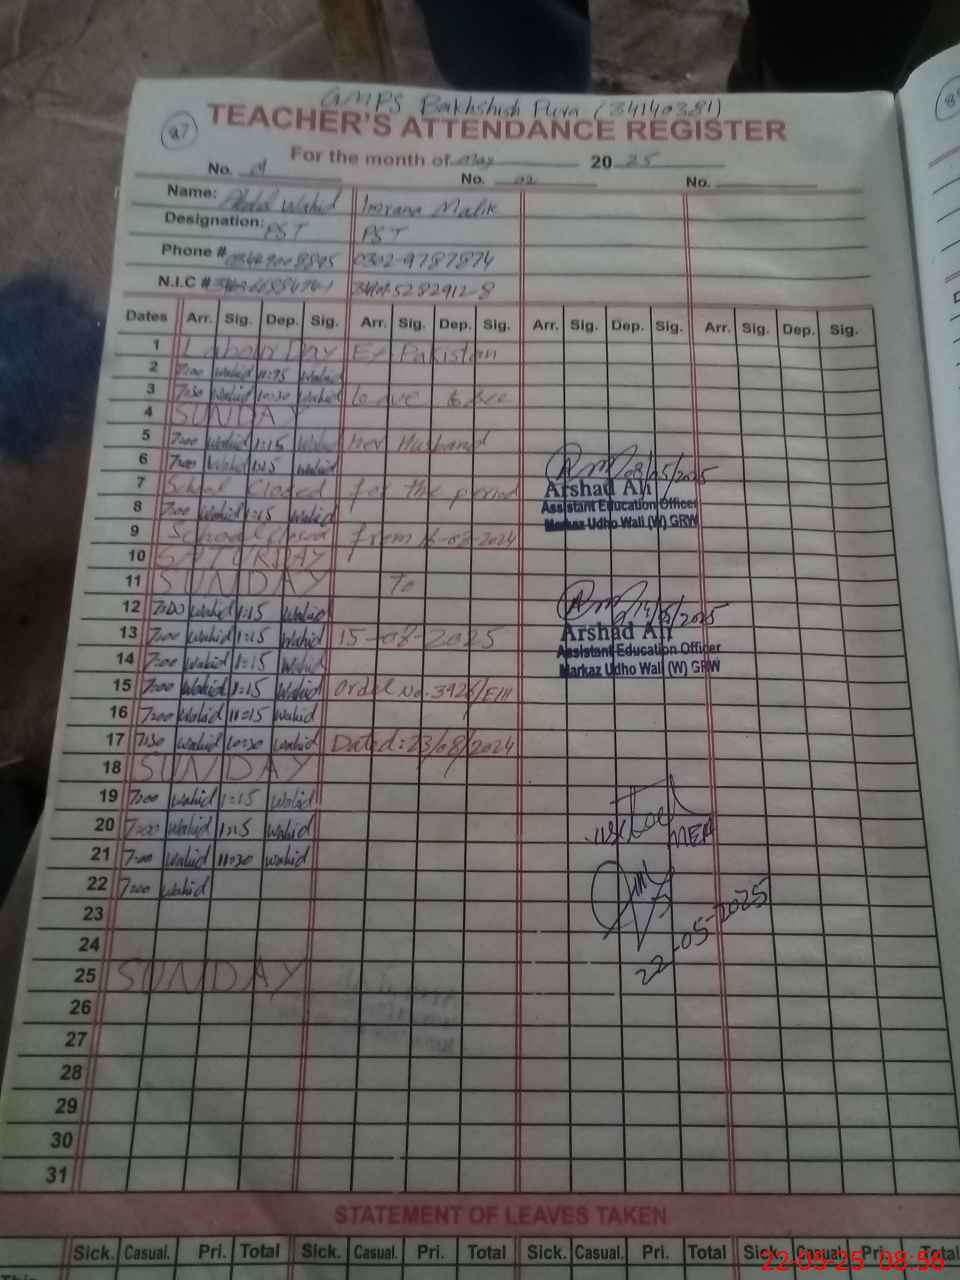 GMPS Bakhshish Pura (34140381)
87
TEACHER'S ATTENDANCE REGISTER
For the month of May 2025
No. 01 No. 02 No.
Name: Abdul Wahid Imrana Malik
Designation: PST PST
Phone # 0302-9787874
N.I.C #
Dates Arr. Sig. Dep. Sig. Arr. Sig. Dep. Sig. Arr. Sig. Dep. Sig. Arr. Sig. Dep. Sig.
1 Labour Day Ex-Pakistan
2 7:00 wahid wahid
3 7:30 wahid 10:30 wahid leave
4 SUNDAY
5 7:00 wahid 1:15 wahid her Husband
6 7:00 wahid 1:15 wahid
08/05/2025
7 School Closed for the period
Arshad Ali
8 7:00 wahid 1:15 wahid
Assistant Education Officer
Markaz Udho Wali (W) GRW
9 School closed from
10 SATURDAY
11 SUNDAY to
12 7:00 wahid 1:15 wahid
13 7:00 wahid 1:15 wahid 15-08-2025
Arshad Ali
14 7:00 wahid 1:15 wahid
Assistant Education Officer
Markaz Udho Wali (W) GRW
15 7:00 wahid 1:15 wahid Order No. 3926/EIII
16 7:00 wahid 11:15 wahid
17 7:30 wahid 10:30 wahid Dated: 23/08/2024
18 SUNDAY
19 7:00 wahid 1:15 wahid
20 7:00 wahid 1:15 wahid
MEA
21 7:00 wahid 11:30 wahid
22 7:00 wahid
22-05-2025
23
24
25 SUNDAY
26
27
28
29
30
31
STATEMENT OF LEAVES TAKEN
Sick. Casual. Pri. Total Sick. Casual. Pri. Total Sick. Casual. Pri. Total Sick. Casual. Pri. Total
This
22-05-25 08:56